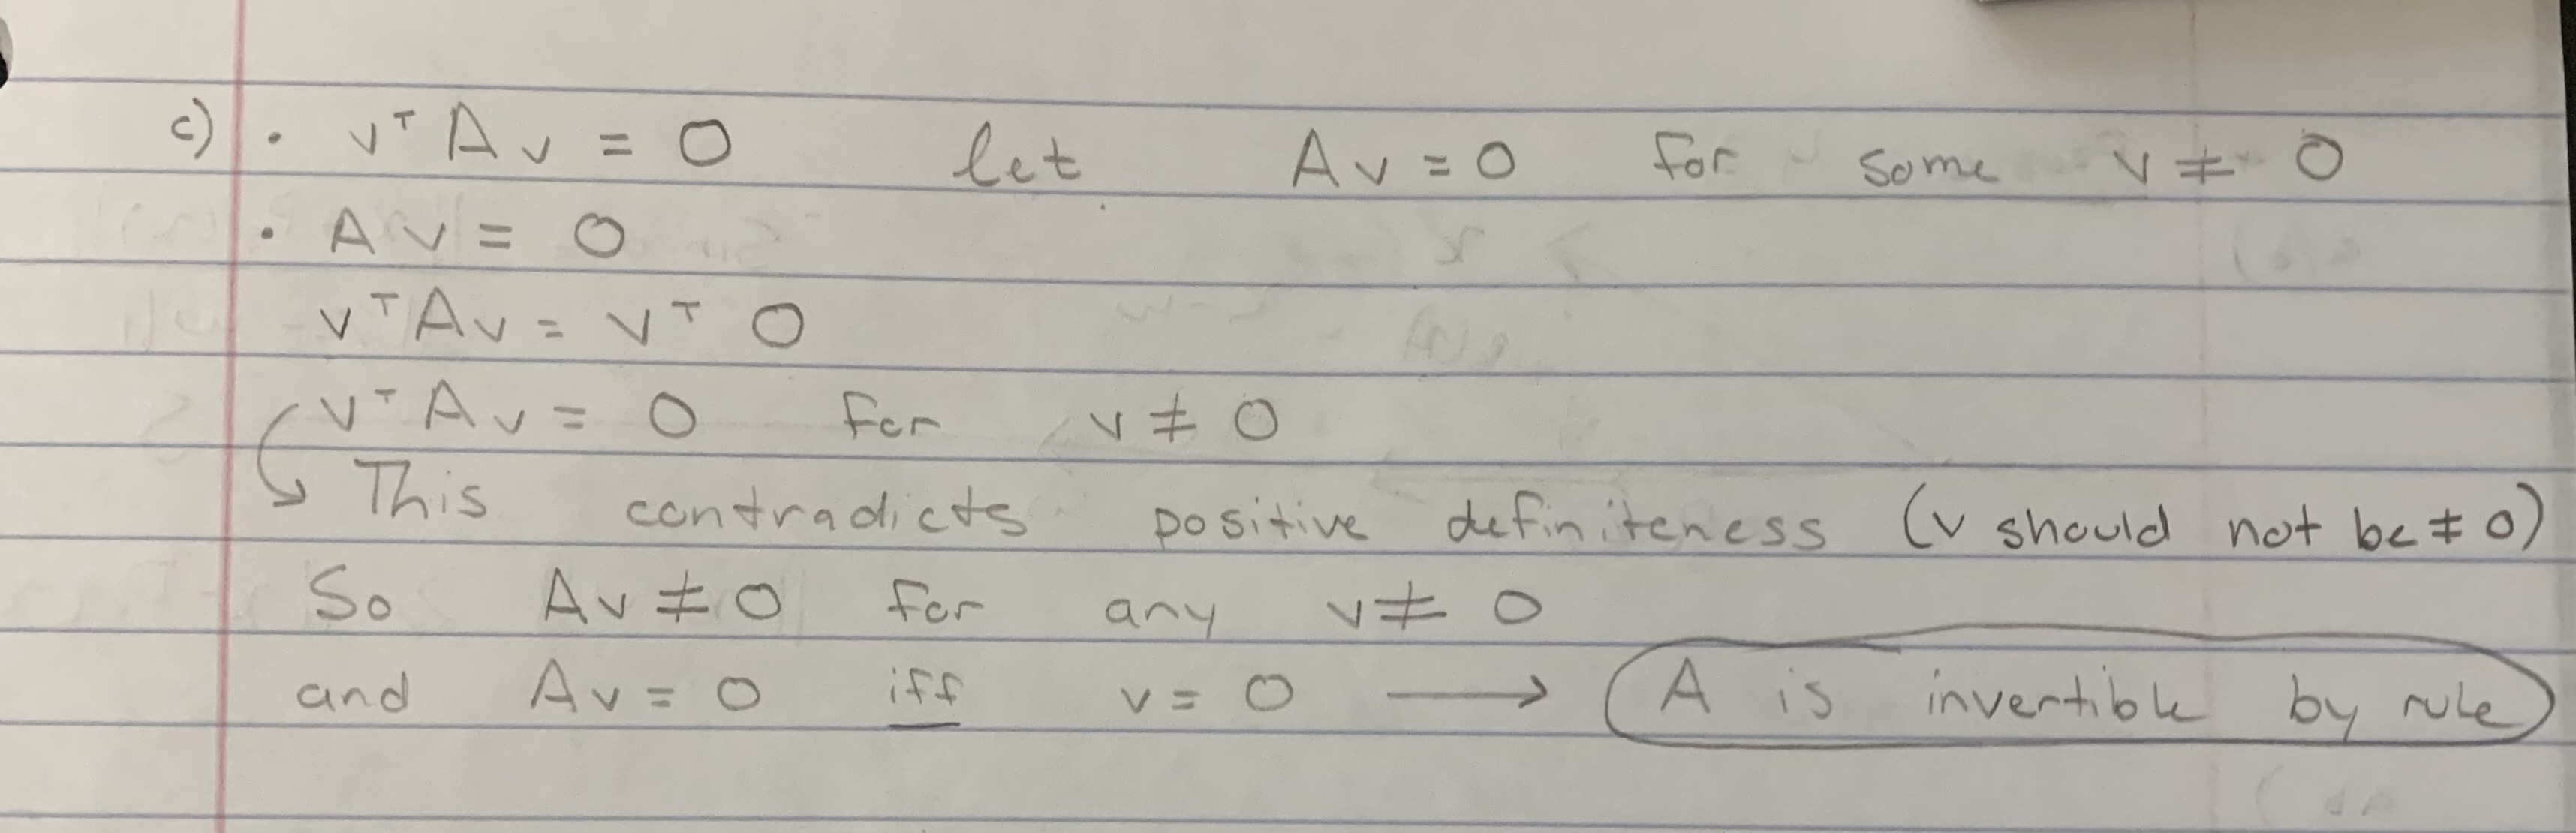 c) • vᵀAv = 0 let Av = 0 for some v ≠ 0
• Av = 0
vᵀAv = vᵀ0
vᵀAv = 0 for v ≠ 0
↳ This contradicts positive definiteness (v should not be ≠ 0)
So Av ≠ 0 for any v ≠ 0
and Av = 0 iff v = 0 ⟶ A is invertible by rule